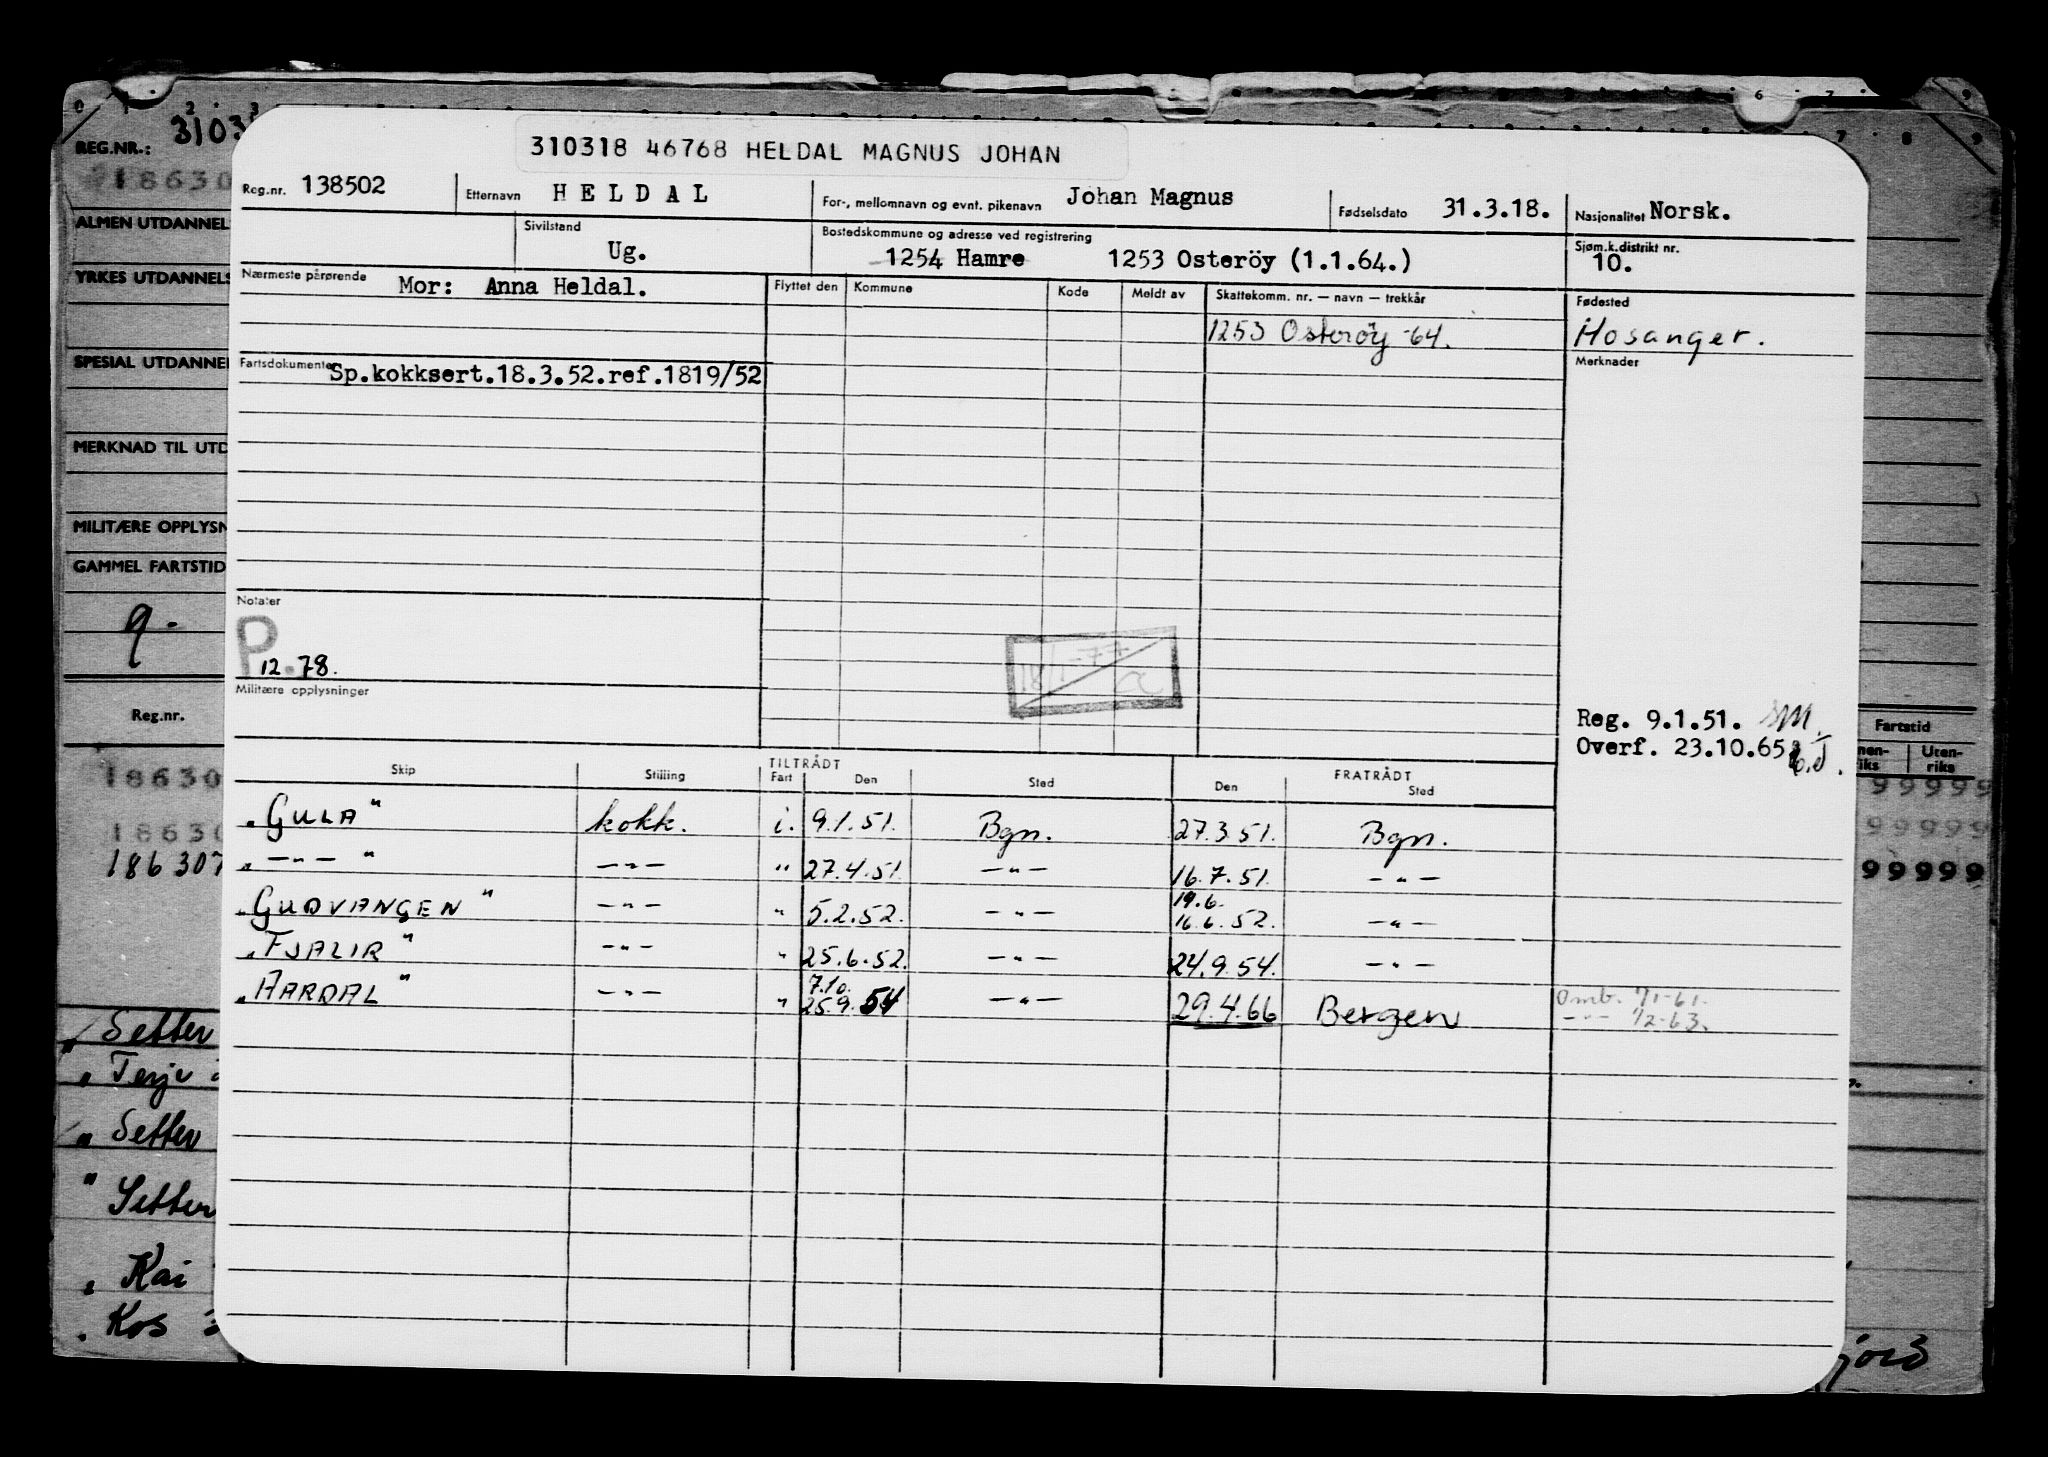 310318 46768 HELDAL MAGNUS JOHAN
Reg.nr. 138502 Etternavn HELDAL For-, mellomnavn og evnt. pikenavn Johan Magnus Fødselsdato 31.3.18. Nasjonalitet Norsk.
Sivilstand Ug. Bostedskommune og adresse ved registrering 1254 Hamre 1253 Osteröy (1.1.64.) Sjøm.k.distrikt nr. 10.
Nærmeste pårørende Mor: Anna Heldal. Flyttet den Kommune Kode Meldt av Skattekomm. nr. — navn — trekkår Fødested
1253 Osterøy -64. Hosanger.
Fartsdokumenter Sp.kokksert.18.3.52.ref.1819/52 Merknader
Notater
P
12.78.
18/1-77
Militære opplysninger
Reg. 9.1.51.
Overf. 23.10.65
Skip Stilling TILTRÅDT Fart Den Sted FRATRÅDT Den Sted
"GULA" kokk. i. 9.1.51. Bgn. 27.3.51. Bgn.
" —"— " —"— " 27.4.51. —"— 16.7.51. —"—
"GUDVANGEN" —"— " 5.2.52. —"— 19.6. 16.6.52. —"—
"FJALIR" —"— " 25.6.52. —"— 24.9.54. —"—
"AARDAL" —"— " 7.10. 25.9.54 —"— 29.4.66 Bergen Omb. 1/1-61.
—"— 1/2-63.
REG.NR.: 3103
18630
ALMEN UTDANNEL
YRKES UTDANNELS
SPESIAL UTDANNEL
MERKNAD TIL UTD
MILITÆRE OPPLYSN
GAMMEL FARTSTID
9-
Reg.nr.
18630
18630
186307
Setter
" Terje
" Setter
" Setter
" Kai
" Kos
Fartstid
Innen-riks Uten-riks
99999
99999
99999
jord